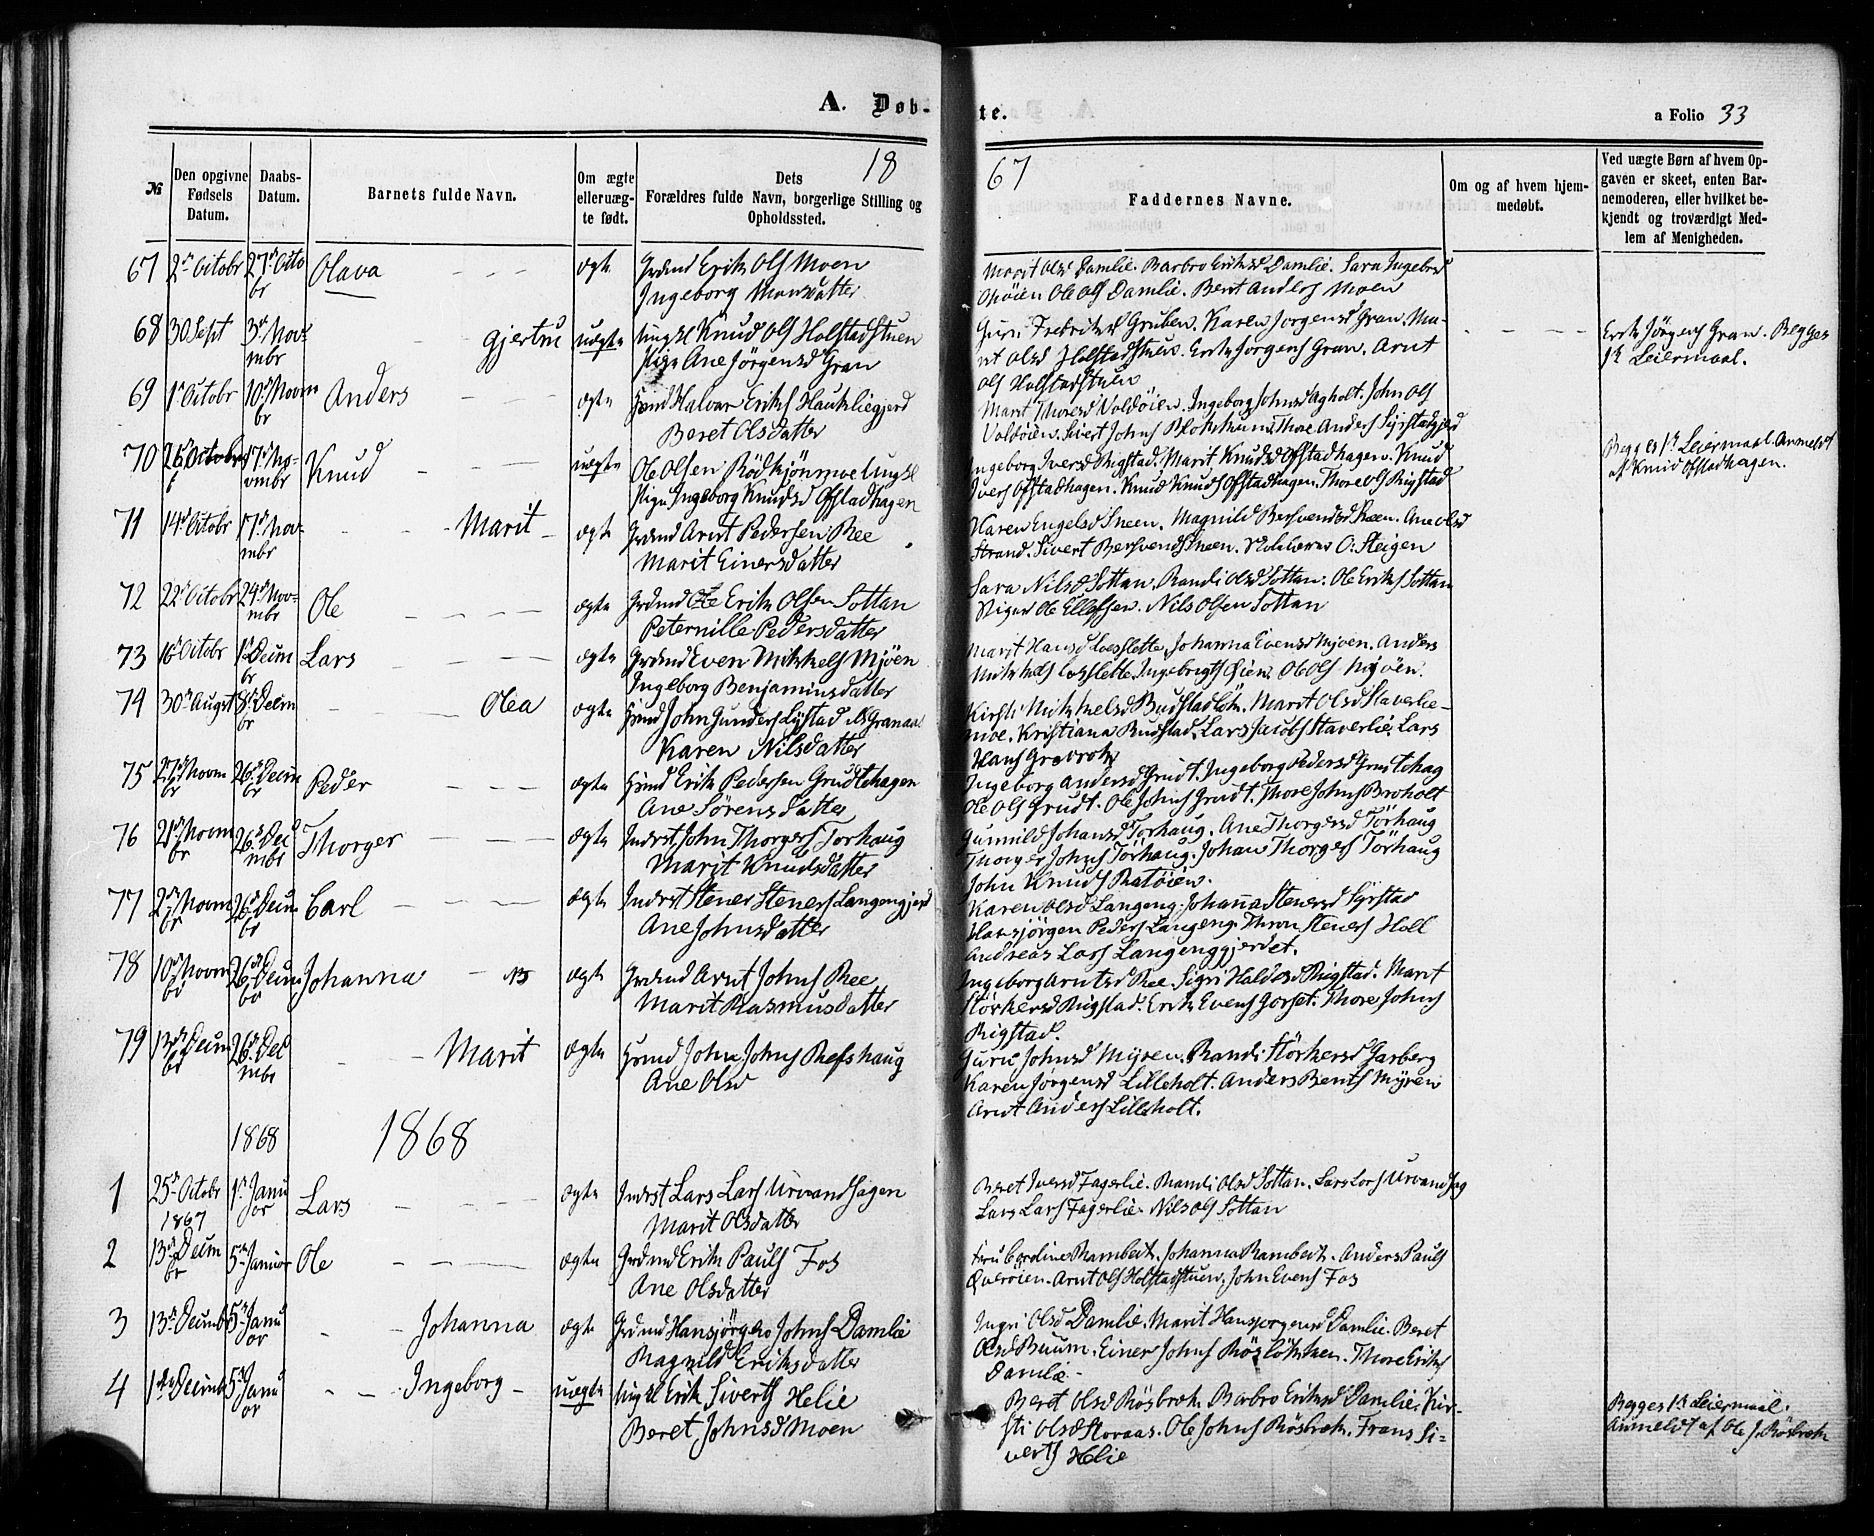 A. Døb-te.
a Folio 33
1867
№
Den opgivne Fødsels Datum.
Daabs-Datum.
Barnets fulde Navn.
Om ægte eller uægte født.
Dets Forældres fulde Navn, borgerlige Stilling og Opholdssted.
Faddernes Navne.
Om og af hvem hjemmedøbt.
Ved uægte Børn af hvem Opgaven er skeet, enten Barnemoderen, eller hvilket bekjendt og troværdigt Medlem af Menigheden.
67 2 Octobr 27 Octobr Olava ægte Grdmd Erik Ols Moen
Ingeborg Monsdatter
Marit Olsd Damlie. Barbro Eriksd Damlie. Sara Ingebrd
Opøien Ole Ols Damlie. Bent Anders Moen
68 30 Sept 3 Novmbr uægte Ungkl Knud Ols Holstadstuen
Pige Ane Jörgensd Gran
Guri Fredriksd Gruben. Karen Jorgensd Gran. Marit Olsd Holstadstuen. Erik Jorgens Gran. Arnt
Ols Holstadstuen
Erik Jörgens Gran. Begges
1ste Leiermaal.
69 1 Octobr 10 Novmbr Anders ægte Hmd Halvor Eriks Haukliegjerd
Beret Olsdatter
Marit Thoresd Voldöien. Ingeborg Johnsd Agholt. John Ols
Voldöien. Sivert Johns. Thore Anders
70 Octobr 17 Novmbr Knud uægte Ole Olsen Ungkl
Pige Ingeborg Knudsd Ofstadhagen
Ingeborg Iversd Rigstad. Marit Knudsd Ofstadhagen. Knud
Ivers Ofstadhagen. Knud Knuds Ofstadhagen. Thore Ols Rigstad
Begges 1ste Leiermaal. Anmeldt
af Knud Ofstadhagen.
71 14 Octobr 17 Novmbr Marit ægte Grdmd Arnt Pedersen Ree
Marit Einersdatter
Karen Engelsd Sneen. Magnild Bersvendsd Sneen. Ane Olsd
Strand. Sivert Bersvends Sneen. O. Steigen
72 22 Octobr 24 Novmbr Ole ægte Grdmd Erik Olsen Sottan
Peternille Pedersdatter
Sara Nilsd Sottan. Randi Olsd Sottan. Ole Eriks Sottan
Ole Ellefsen. Nils Olsen Sottan
73 16 Octobr 1 Decmbr Lars ægte Grdmd Even Mikkels Mjöen
Ingeborg Benjaminsdatter
Marit Hansd Loeslette. Johanna Evensd Mjoen. Anders
Mikkels Loeslette. Ingebrigt. Ole Ols Mjöen.
74 30 August 8 Decmbr Olea ægte Hmd John Gunders
Karen Nilsdatter
Kirsti Mikkelsd. Marit Olsd Staverlie-
moe. Kristiana Rudstad. Lars Jacobs Staverlie. Lars
Hans
75 27 Novmbr 26 Decmbr Peder ægte Hmd Erik Pedersen Grudthagen
Ane Sörensdatter
Ingeborg Andersd Grudt. Ingeborg Pedersd Grudthag
Ole Ols Grudt. Ole Johns Grudt. Thore Johns Broholt
76 21 Novmbr 26 Decmbr Thorger ægte Indrst John Thorgers Torhaug
Marit Knudsdatter
Gunnild Johansd Torhaug. Ane Thorgersd Törhaug
Thorger Johns Törhaug. Johan Thorgers Törhaug
John Knuds Ratöien.
77 2 Novmbr 26 Decmbr Carl ægte Indrst Stener Steners Langengjerd
Ane Johnsdatter
Karen Olsd Langeng. Johanna Stenersd Syrstad
Hansjörgen Peders Langeng. Thron Steners Holl
Andreas Lars Langenggjerdet.
78 10 Novmbr 26 Decmbr Johanna NB ægte Grdmd Arnt Johns Ree
Marit Rasmusdatter
Ingeborg Arntsd Ree. Sigri Haldosd Rigstad. Marit
Störkersd Rigstad. Erik Evens Gorset. Thore Johns
Rigstad.
79 13 Decmbr 26 Decmbr Marit ægte Hmd John Johns Refshaug
Ane Olsd
Guru Johnsd Myren. Randi Störkersd Garberg
Karen Jörgensd Lilleholt. Anders Bents Myren
Arnt Anders Lilleholt.
1868 1868
1 25 Octobr 1867 1 Januor Lars ægte Indrst Lars Lars Urvandhagen
Marit Olsdatter
Beret Iversd Fagerlie. Randi Olsd Sottan. Lars Lars Urvandhag
Lars Lars Fagerlie. Nils Ols Sottan
2 13 Decmbr 5 Januor Ole ægte Grdmd Erik Pauls Fos
Ane Olsdatter
Fru Cardine Rambech. Johanna Rambech. Anders Pauls
Qveröien. Arnt Ols Holstadstuen. John Evens Fos
3 13 Decmbr 5 Januor Johanna ægte Grdmd Hansjörgen Johns Damlie
Magnild Eriksdatter
Ingri Olsd Damlie. Marit Hansjorgensd Damlie. Beret
Olsd Buum. Einer Johns. Thore Eriks
Damlie.
4 1 Decmbr 5 Januor Ingeborg uægte Ungkl Erik Siverts Helie
Beret Johnsd Moen
Beret Olsd Rösbrok. Barbro Eriksd Damlie. Kir-
sti Olsd Storaas. Ole Johns Rösbrok. Frans Si-
verts Helie
Begges 1ste Leiermaal.
Anmeldt af Ole J. Rösbrok